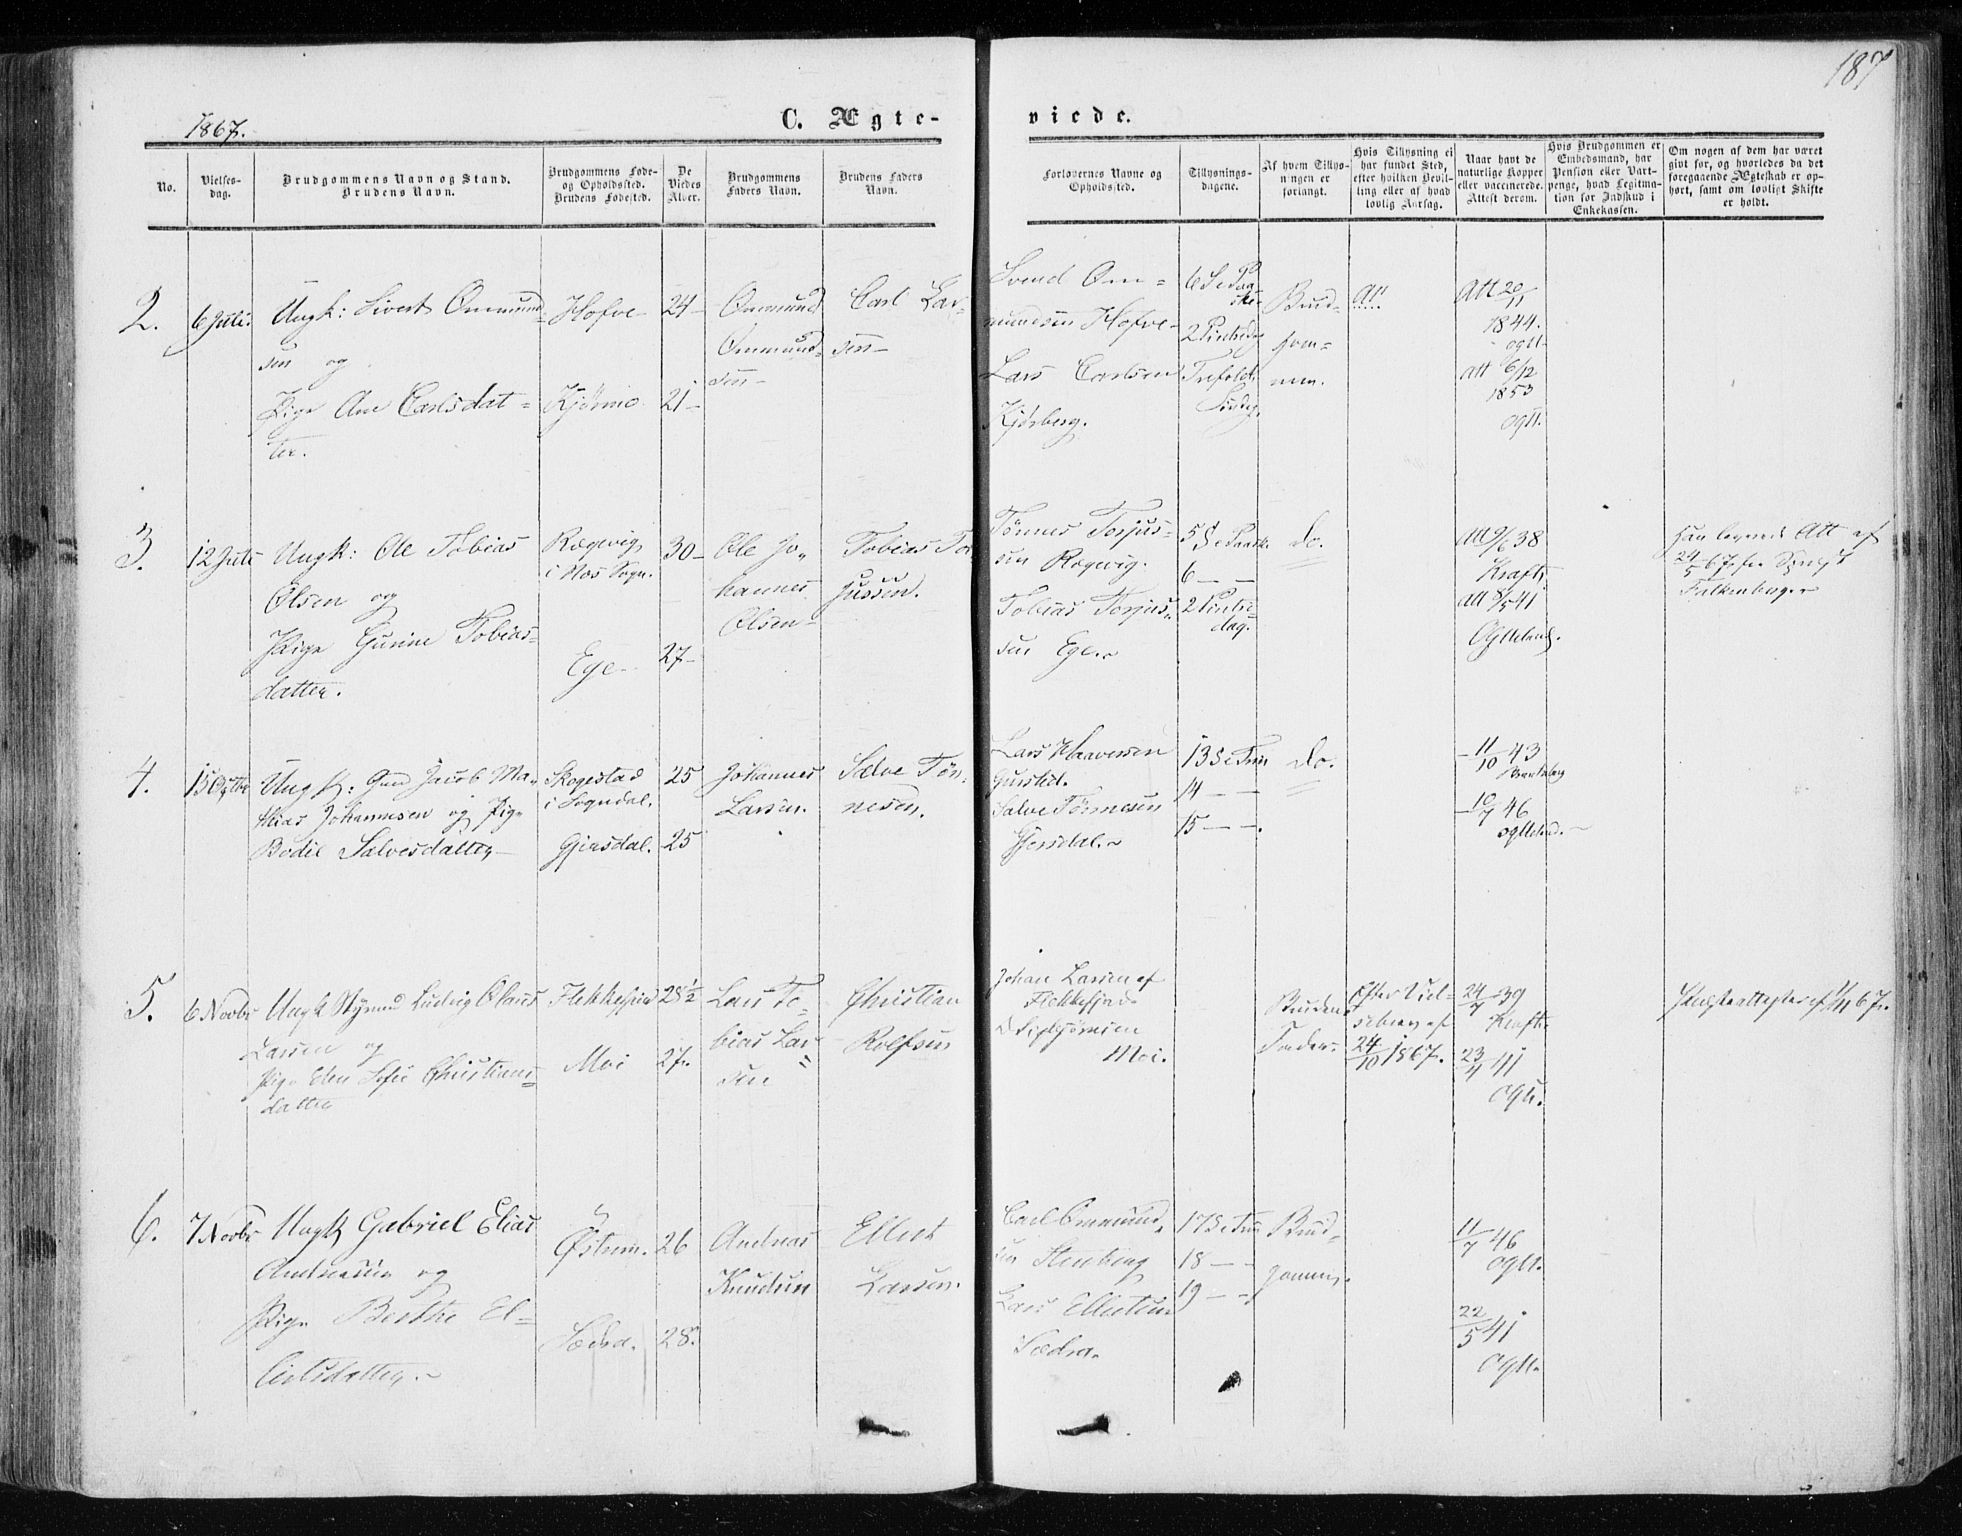 187
1867.
C. Ægte-
viede.
No.
Vielses-
dag.
Brudgommens Navn og Stand.
Brudens Navn.
Brudgommens Føde-
og Opholdssted.
Brudens Fødested.
De
Viedes
Alder.
Brudgommens
Faders Navn.
Brudens Faders
Navn.
Forlovernes Navne og
Opholdssted.
Tillysnings-
dagene.
Af hvem Tillys-
ningen er
forlangt.
Hvis Tillysning ei
har fundet Sted,
efter hvilken Bevil-
ling eller af hvad
lovlig Aarsag.
Naar havt de
naturlige Kopper
eller vaccinerede.
Attest derom.
Hvis Brudgommen er
Embedsmand, har
Pension eller Vart-
penge, hvad Legitima-
tion for Indskud i
Enkekassen.
Om nogen af dem har været
givt før, og hvorledes da det
foregaaende Ægteskab er op-
hørt, samt om lovligt Skifte
er holdt.
2.
6 Juli.
Ungk: Sivert Ommund-
sen og
Pige Ane Carlsdat-
ter.
Hofve
Kjørmo
24-
21-
Ommund
Ommund-
sen-
Carl Lar-
sen-
Svend Om-
mundsen Hofve-
Lars Carlsen
Kjørberg.
2 Pintsedag
Trefold.
Søndag.
Brud-
gom-
men.
Att 20/11
1844.
ogtl-
att 6/12
1853
Ogtl.
3.
12 Juli
Ungk: Ole Tobias
Olsen og
Pige Gurine Tobias-
datter.
Rægevig
i Næs Sogn.
Ege-
30-
27-
Ole Jo-
hannes
Olsen-
Tobias Tor-
jussen.
Tønnes Torjus-
sen Rægevig.
Tobias Torjus-
sen Ege.
6 — —
2 Pintse-
dag.
do.
Att 9/6 38
Kraft,
att 8/5 41
Ogtteland.
Han leverede Att af
24/5 67 fra
Falkenberg.
4.
Ungk: Gud Jacob Ma-
thias Johannesen og Pige
Bodil Salvesdatter
Skogestad
i Sogndal.
Gjersdal.
25
25
Johannes
Larsen.
Salve Tøn-
nesen.
Lars Haavorsen
Salve Tønnesen
Gjersdal.
13 S e Trin
14 — —
15 — —.
do.
- 11/10 43
- 10/7 46
Ogtteland.
5.
6 Novbr
Ungk Ludvig Olaus
Larsen og
Pige Elen Sofie Christians-
datter
Flekkefjord
Moi
28½
27.
Lars To-
bias Lar-
sen
Christian
Rolfsen
Johan Larsen af
Flekkefjord
Moi.
Brudens
Fader.
Efter Viel-
sebrev af
24/10 1867.
24/7 39
Kraft.
23/11 41
Ogtl.
6.
7 Novbr
Ungk Gabriel Elias
Andreassen og
Pige Berthe El-
Østrem.
Sædra.
26
28.
Andreas
Knudsen
Ellert
Larsen.
Carl Ommund-
sen Stenberg
Lars Ellertsen
Sædra.
17 S e Trin
18 — —
19 — —
Brud-
gommen.
11/7 46
Ogtl.
22/5 41
Ogtl.